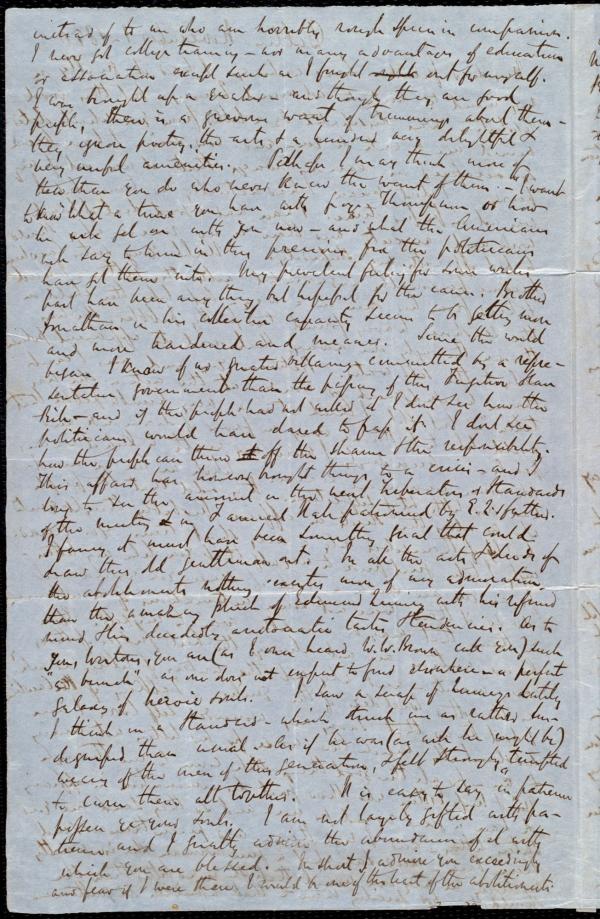 instead of to us who are horribly rough specimens in comparison.
I never got college training – nor many advantages of education
or association except such as I fought out for myself.
I was brought up a quaker – and though they are good
people, there is a grievous want of trimmings about them –
they ignore poetry, the arts, & a hundred very delightful &
very useful amenities. Perhaps I may think more of
these than you do who never knew the want of them. – I want
to know what a time you have with George Thompson or how
he will get on with you now – and what the Americans
will say to him in this precious fix the politicians
have got them into. My prevalent feeling for some weeks
past has been anything but hopeful for the cause. Brother
Jonathan in his collective capacity seems to be getting more
and more hardened and meaner. Since the world
began I know of no greater villainy committed by a repre-
sentative government than the passing of this Fugitive Slave
Bill – and if the people had not willed it I dont see how the
politicians would have dared to pass it. I dont see
how the people can throw off the shame & the responsibility.
This affair has however brought things to a crisis – and I
long to see the arrival of the next Liberators & Standards
of the meeting in Faneuil Hall patronised by
I fancy it must have been something great that could
draw this old gentleman out. In all the acts & deeds of
the abolitionists nothing excites more of my admiration
than the amazing pluck of Edmund Quincy with his refined
mind & his decidedly aristocratic tastes & tendencies. As to
you Westons, you are (as I once heard W. W. Brown call em) such
"a bunch" as one does not expect to find elsewhere – a perfect
galaxy of heroic souls. I saw a scrap of Quincy's lately
I think in a Standard – which struck me as rather less
dignified than usual – As if he was (as well he might be)
weary of the men of this generation, & felt strongly tempted
to curse them all together. It is easy to say "in patience
possess ye your souls. I am not largely gifted with pa-
tience and I greatly admire the abundance of it with
which you are blessed. In short I admire you exceedingly
and fear if I were there I would be one of the of the abolitionists.